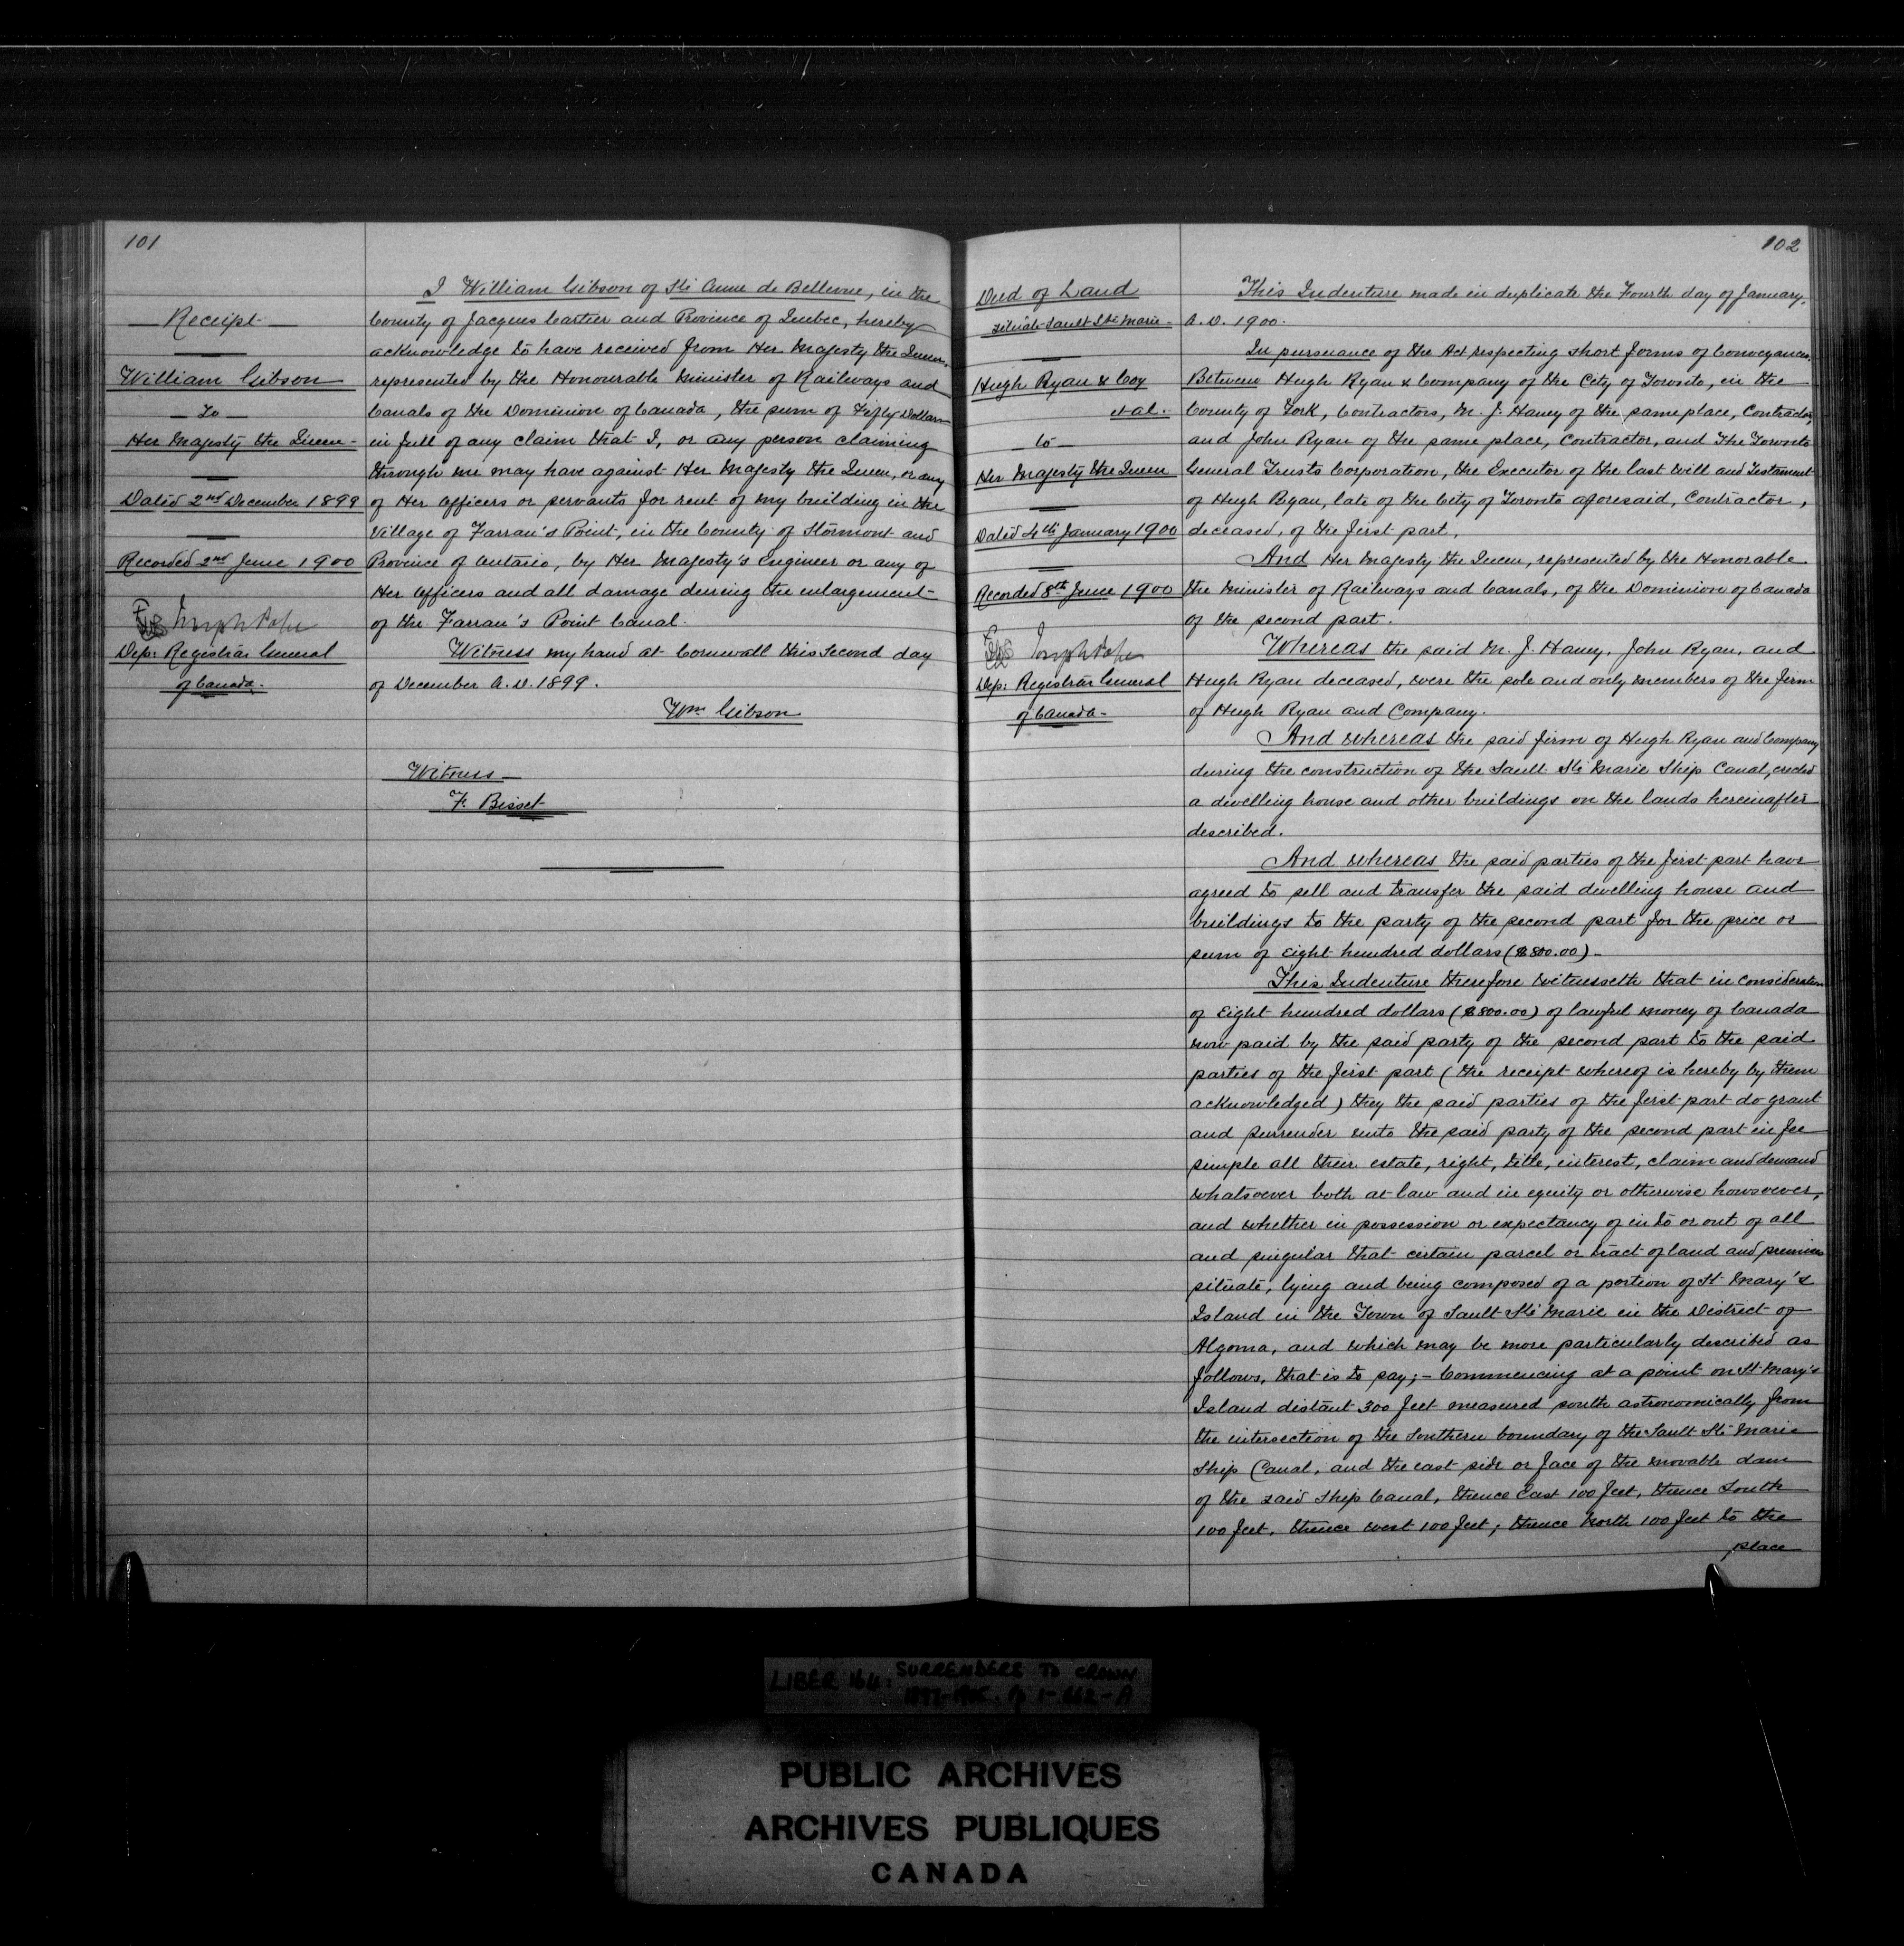 101
Receipt
William Gibson
To
Her Majesty the Queen
Dated 2nd December 1899
Recorded 2nd June 1900
Joseph Pope
Dep: Registrar General
of Canada.
I William Gibson of Ste Anne de Bellevue, in the
County of Jacques Cartier and Province of Quebec, hereby
acknowledge to have received from Her Majesty the Queen,
represented by the Honourable Minister of Railways and
Canals of the Dominion of Canada, the sum of Fifty Dollars
in full of any claim that I, or any person claiming
through me may have against Her Majesty the Queen, or any
of Her Officers or servants for rent of my building in the
Village of Farran's Point, in the County of Stormont and
Province of Ontario, by Her Majesty's Engineer or any of
Her Officers and all damage during the enlargement
of the Farran's Point Canal.
Witness my hand at Cornwall this second day
of December A.D. 1899.
Wm Gibson
Witness
F. Bisset
102
Deed of Land
situate Sault Ste Marie
Hugh Ryan & Coy
et al.
to
Her Majesty the Queen
Dated 4th January 1900
Recorded 8th June 1900
Joseph Pope
Dep: Registrar General
of Canada
This Indenture made in duplicate the Fourth day of January,
A.D. 1900.
In pursuance of the Act respecting short forms of Conveyances,
Between Hugh Ryan & Company of the City of Toronto, in the
County of York, Contractors, M. J. Haney of the same place, Contractor,
and John Ryan of the same place, Contractor, and The Toronto
General Trusts Corporation, the Executor of the last Will and Testament
of Hugh Ryan, late of the City of Toronto aforesaid, Contractor,
deceased, of the first part,
And Her Majesty the Queen, represented by the Honorable
the Minister of Railways and Canals, of the Dominion of Canada
of the second part.
Whereas the said M. J. Haney, John Ryan, and
Hugh Ryan deceased, were the sole and only members of the firm
of Hugh Ryan and Company.
And whereas the said firm of Hugh Ryan and Company
during the construction of the Sault Ste Marie Ship Canal, erected
a dwelling house and other buildings on the lands hereinafter
described.
And whereas the said parties of the first part have
agreed to sell and transfer the said dwelling house and
buildings to the party of the second part for the price or
sum of Eight hundred dollars ($800.00)
This Indenture therefore witnesseth that in consideration
of Eight hundred dollars ($800.00) of lawful money of Canada
now paid by the said party of the second part to the said
parties of the first part (the receipt whereof is hereby by them
acknowledged) they the said parties of the first part do grant
and surrender unto the said party of the second part in fee
simple all their estate, right, title, interest, claim and demand
whatsoever both at law and in equity or otherwise howsoever,
and whether in possession or expectancy of in to or out of all
and singular that certain parcel or tract of land and premises
situate, lying and being composed of a portion of St Mary's
Island in the Town of Sault Ste Marie in the District of
Algoma, and which may be more particularly described as
follows, that is to say; - Commencing at a point on St Mary's
Island distant 300 feet measured south astronomically from
the intersection of the Southern boundary of the Sault Ste Marie
Ship Canal, and the east side or face of the movable dam
of the said Ship Canal, thence East 100 feet, thence South
100 feet, thence west 100 feet; thence North 100 feet to the
place
LIBER 164: SURRENDERS TO CROWN
PUBLIC ARCHIVES
ARCHIVES PUBLIQUES
CANADA